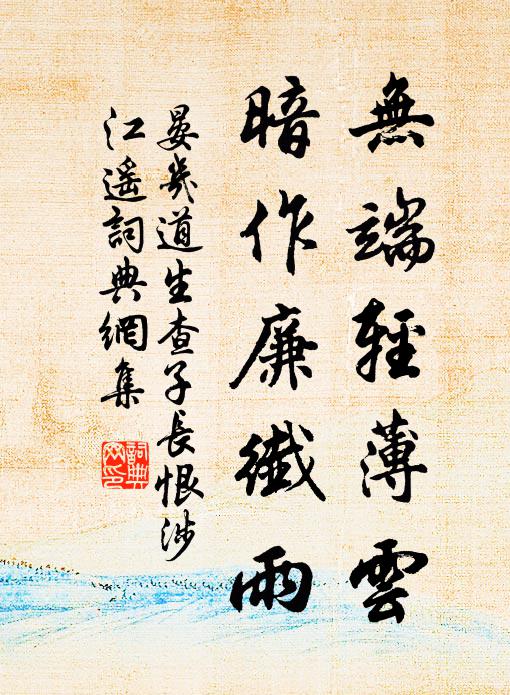 無端輕薄雲
暗作廉纖雨
晏幾道生查子長恨涉
江遙詞典網集
詞典
网印